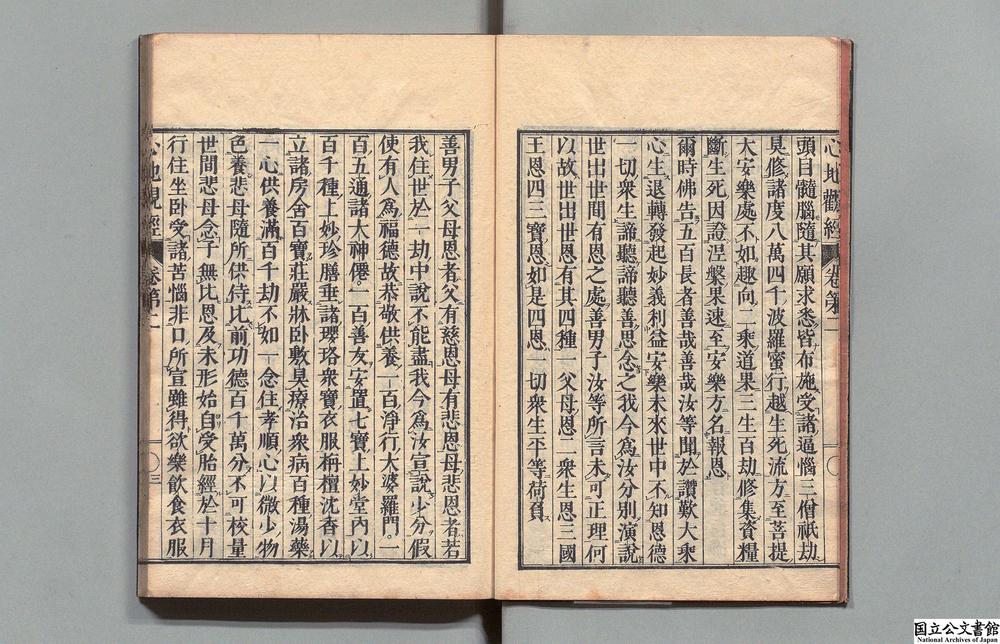 心地觀經 卷第二 〇
頭目髓腦隨其願求悉皆布施受諸逼惱三僧祇劫
具修諸度八萬四千波羅蜜行越生死流方至菩提
大安樂處不如趣向二乘道果三生百劫修集資糧
斷生死因證涅槃果速至安樂方名報恩
爾時佛告五百長者善哉善哉汝等聞於讚歎大乘
心生退轉發起妙義利益安樂未來世中不知恩德
一切衆生諦聽諦聽善思念之我今爲汝分別演說
世出世間有恩之處善男子汝等所言未可正理何
以故世出世恩有其四種一父母恩二衆生恩三國
王恩四三寶恩如是四恩一切衆生平等荷負
善男子父母恩者父有慈恩母有悲恩母悲恩者若
我住世於一劫中說不能盡我今爲汝宣說少分假
使有人爲福德故恭敬供養一百淨行大婆羅門一
百五通諸大神僊一百善友安置七寶上妙堂內以
百千種上妙珍膳垂諸瓔珞衆寶衣服栴檀沈香以
立諸房舍百寶莊嚴牀臥敷具療治衆病百種湯藥
一心供養滿百千劫不如一念住孝順心以微少物
色養悲母隨所供侍比前功德百千萬分不可校量
世間悲母念子無比恩及未形始自受胎經於十月
行住坐卧受諸苦惱非口所宣雖得欲樂飮食衣服
心地觀經 卷第二 〇三
国立公文書館
National Archives of Japan